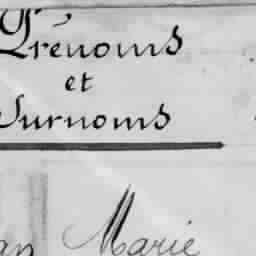 Prénoms
et
Surnoms
Marie